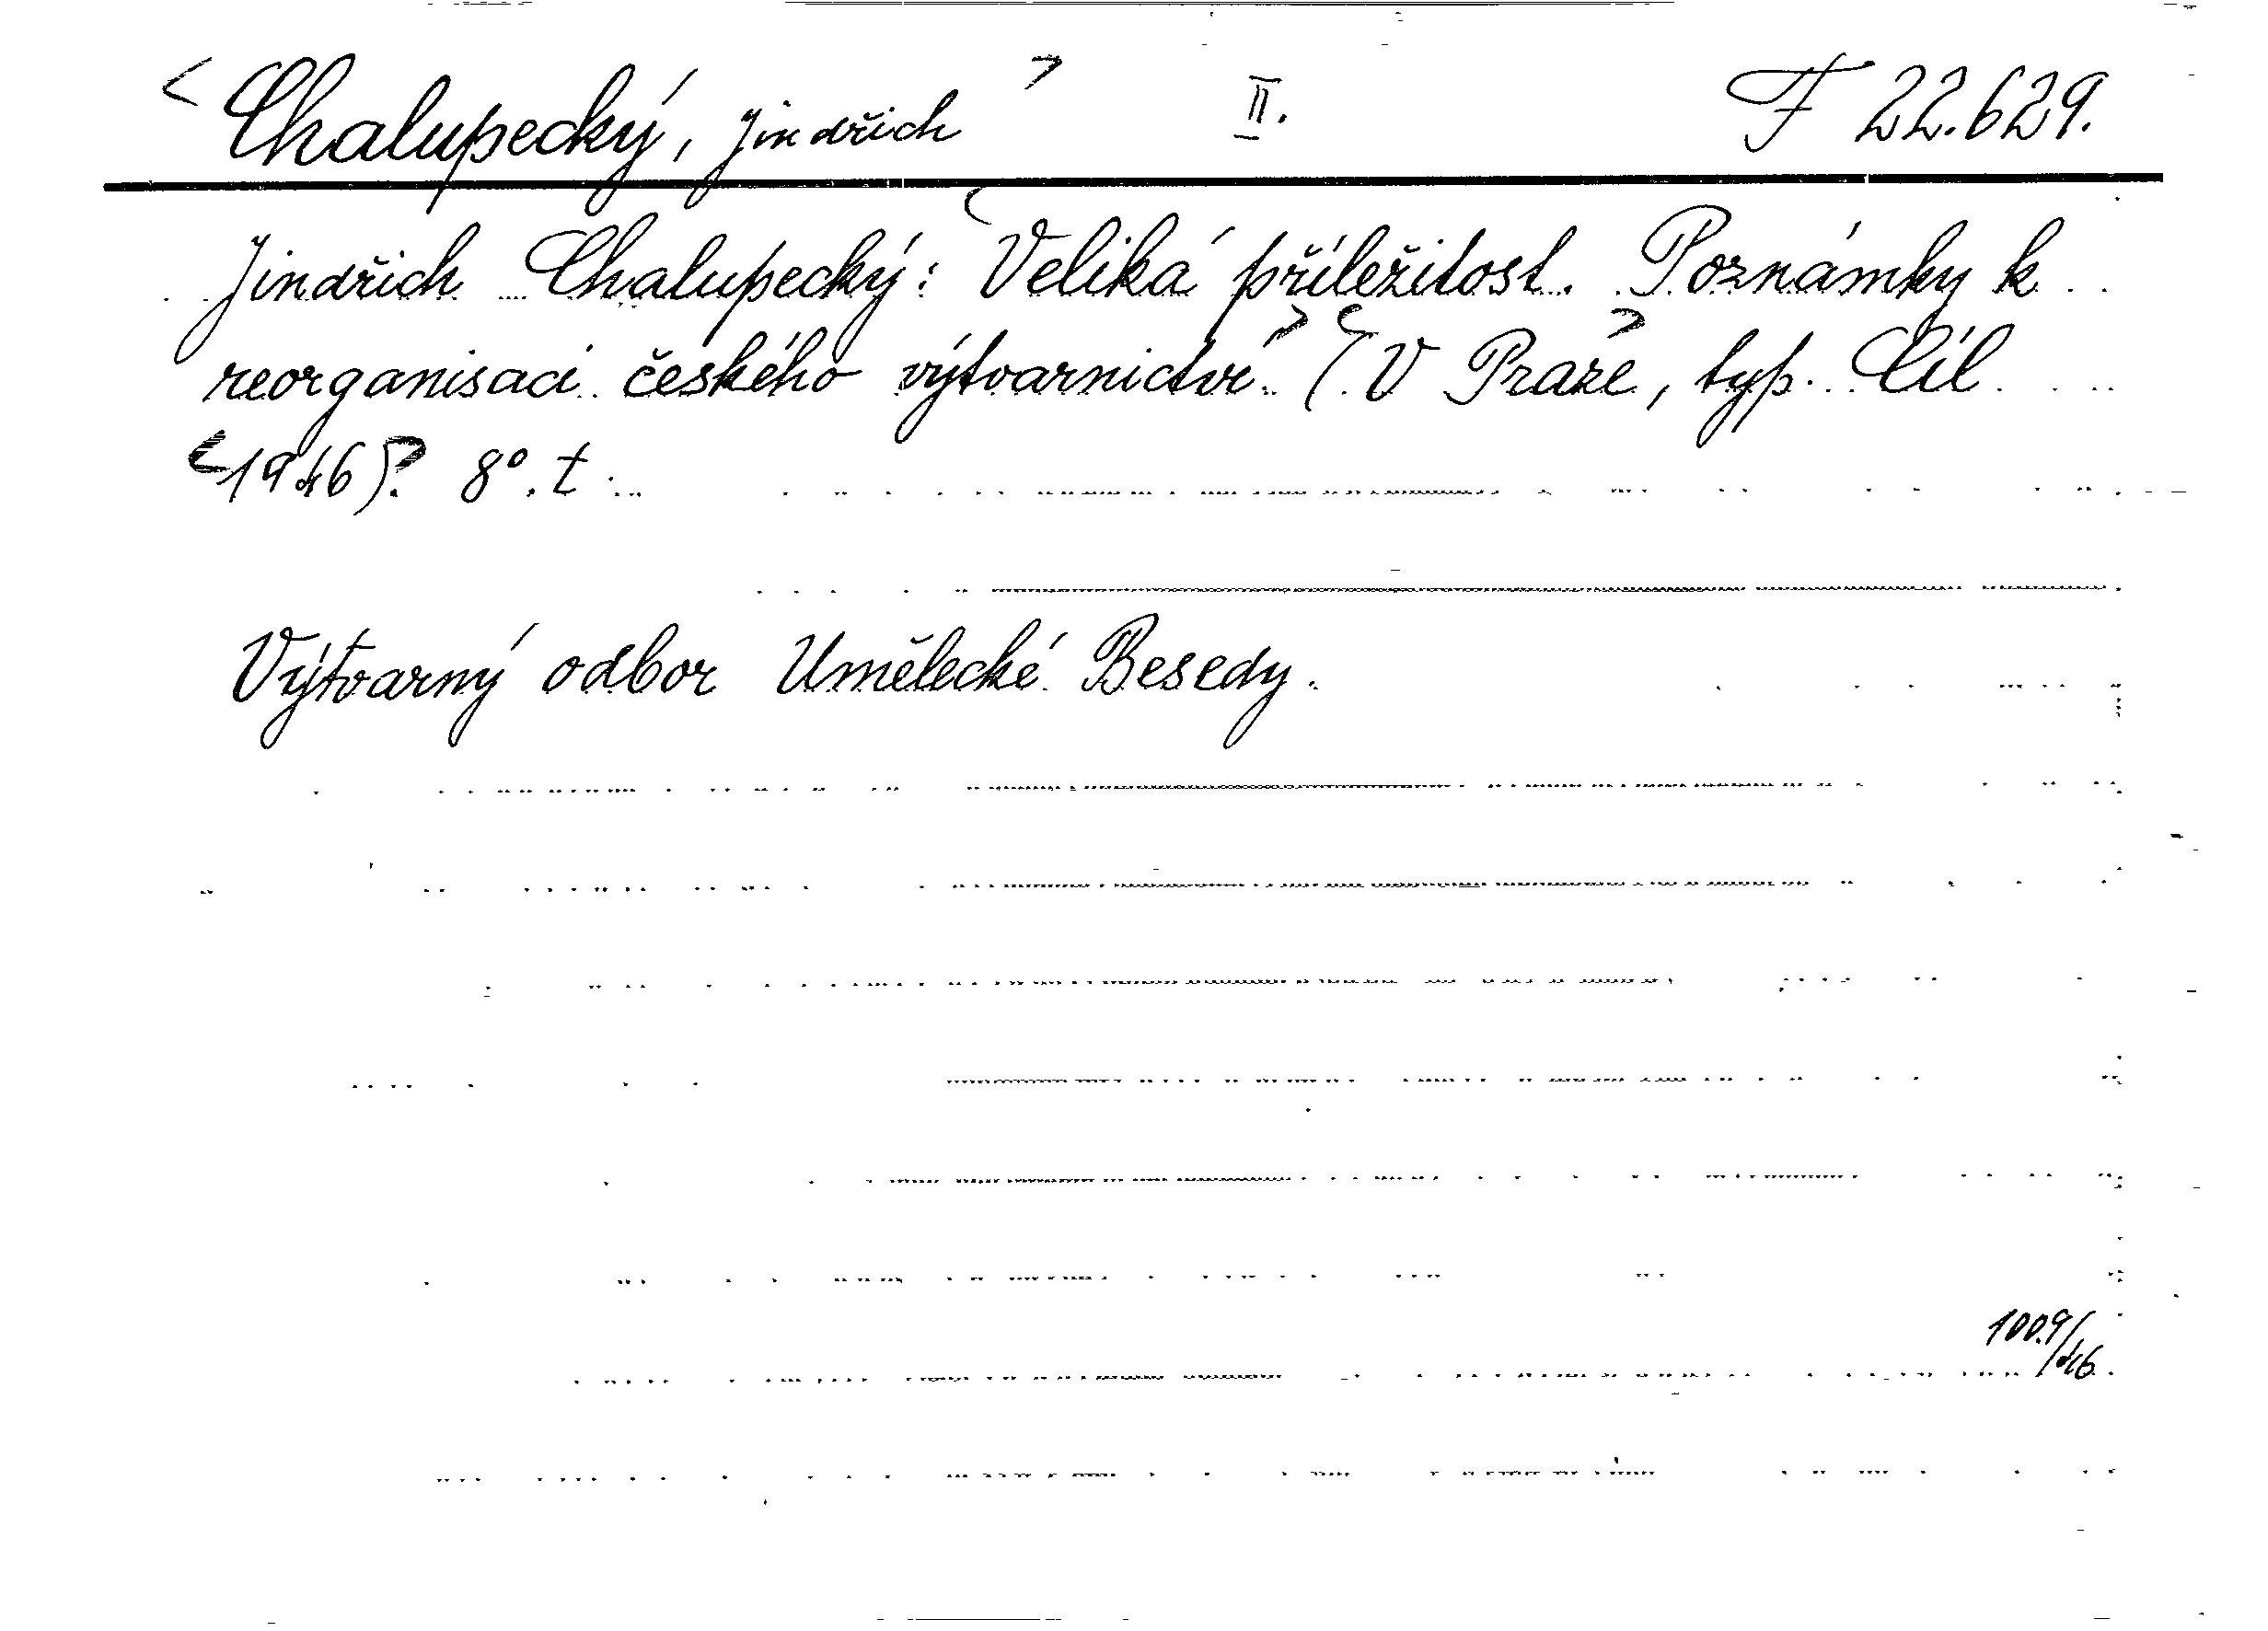 <Chalupecký, Jindřich> II. F 22.629.
Jindřich Chalupecký: <Veliká příležitost. Poznámky k
reorganisaci českého výtvarnictví.> (<V Praze>, typ. Cíl
<1946)>. 8°. t.
Výtvarný odbor Umělecké Besedy.
1009/46.